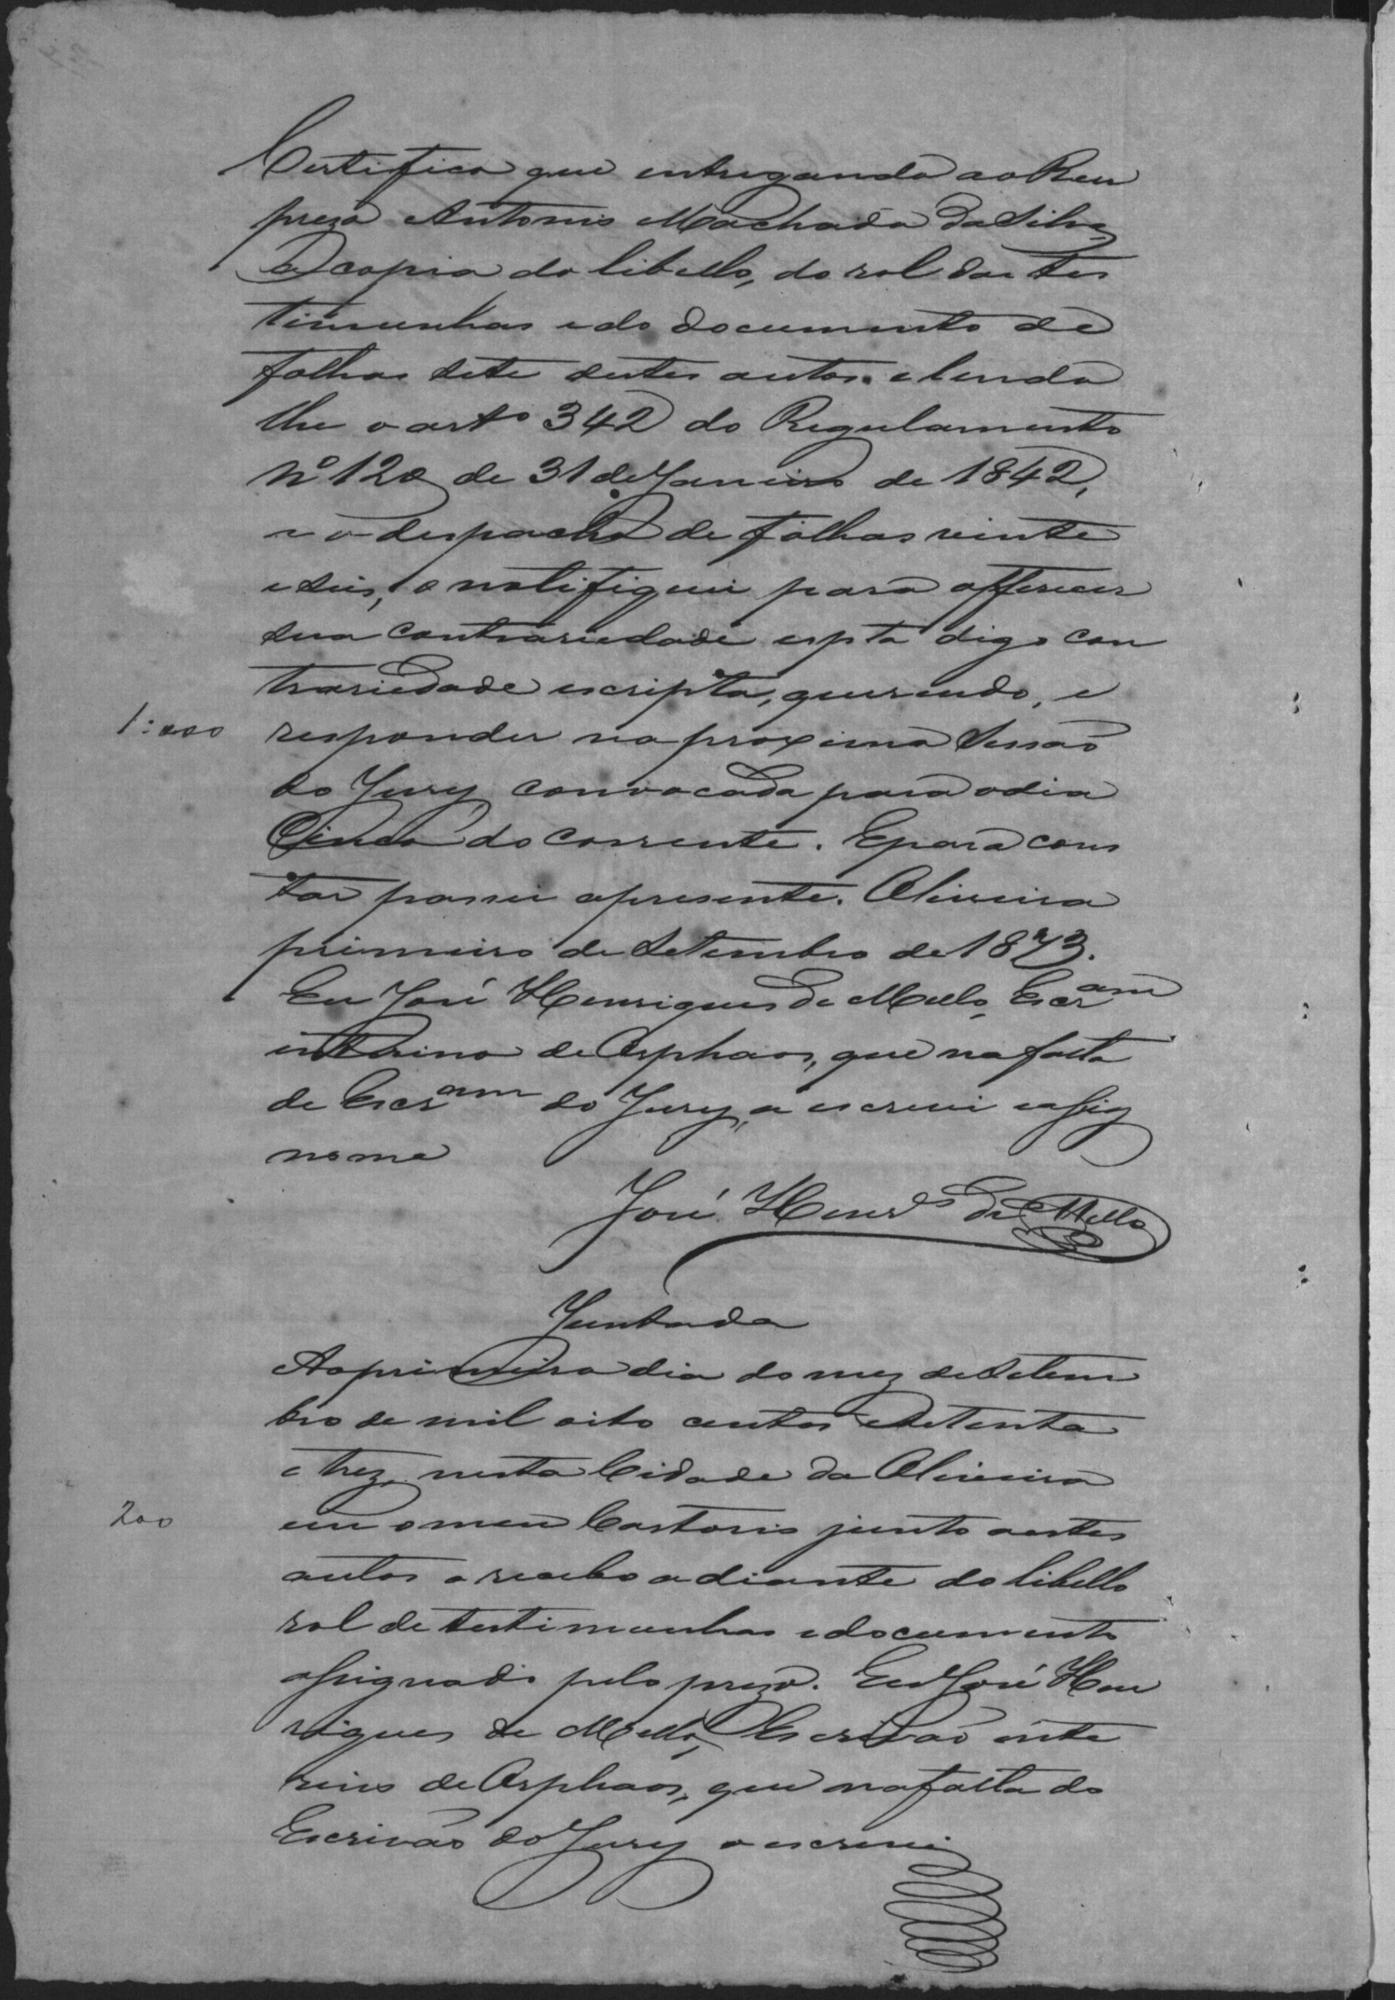 Certifico que entregando ao Reu
prezo Antonio Machado da Silva
a copia do libello, do rol das tes
timunhas e do documento de
folhas sete destes autos. e lendo
lhe o artº 342 do Regulamento
Nº 120 de 31 de Janeiro de 1842,
e o despacho de folhas vinte
e seis, o notifiquei para offerecer
sua contrariedade espta digo con
trariedade escripta, querendo, e
1:000 responder na proxima Sessão
do Jury convocada para o dia
Cinco do corrente. E para cons
tar passei a presente. Oliveira
primeiro de Setembro de 1873.
Eu José Henriques de Mello, Escram
interino de Orphaos, que na falta
de Escram do Jury, a escrevi e assig
nome
José Henrs de Mello
Juntada
Ao primeiro dia do mez de Setem
bro de mil oito centos e Setenta
e trez, nesta Cidade da Oliveira
200 em o meu Cartorio junto aestes
autos o recibo adiante do libello
rol de testimunhas e documento
assignado pelo prezo. Eu José Hen
riques de Mello, Escrivão inte
rino de Orphaos, que na falta do
Escrivão do Jury o escrevi